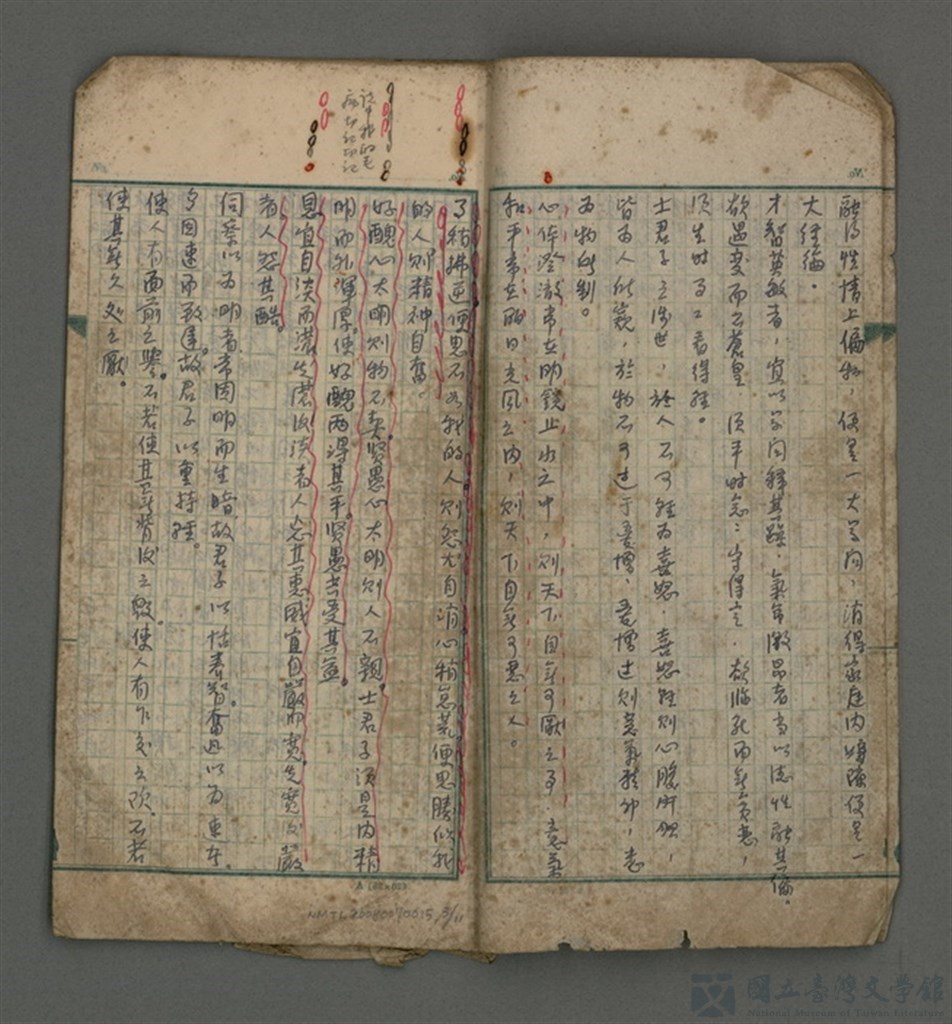 融得性情上偏私，便是一大學問，消得家庭內嫌隙便是一
大經綸。
才智英敏者，宜以學問攝其躁．氣節激昂者當以德性融其偏．
欲遇變而不蒼皇 須平時念念守得定．欲臨死而無貪戀，
須生時事事看得輕。
士君子之涉世，於人不可輕為喜怒 喜怒輕則心腹肝胆，
皆為人所窺，於物不可過于愛憎，愛憎
為物所制。
心体澄澈常在明鏡止水之中，則天下自無可厭之事．意氣
和平常在麗日光風之内，則天下自無可惡之人。
事稍拂逆便思不如我的人，則怨尤自消心稍怠荒便思勝似我
的人則精神自奮。
好醜心太明則物不契。賢愚心太明則人不親。士君子須是内精
明而外渾厚。使好醜兩得其平。賢愚共受其益
恩宜自淡而濃先濃後淡者人忘其惠威宜自嚴而寬。先寬後嚴
者人怨其酷。
伺察以為明者常因明而生暗故君子以恬養智。奮迅以為速者．
多因速而致遲。故君子以重持輕。
使人有面前之譽。不若使其無背後之毀。使人有乍交之歡。不若
使其無久處之厭。
NMTL
國立臺灣文學館
National Museum of Taiwan Literature